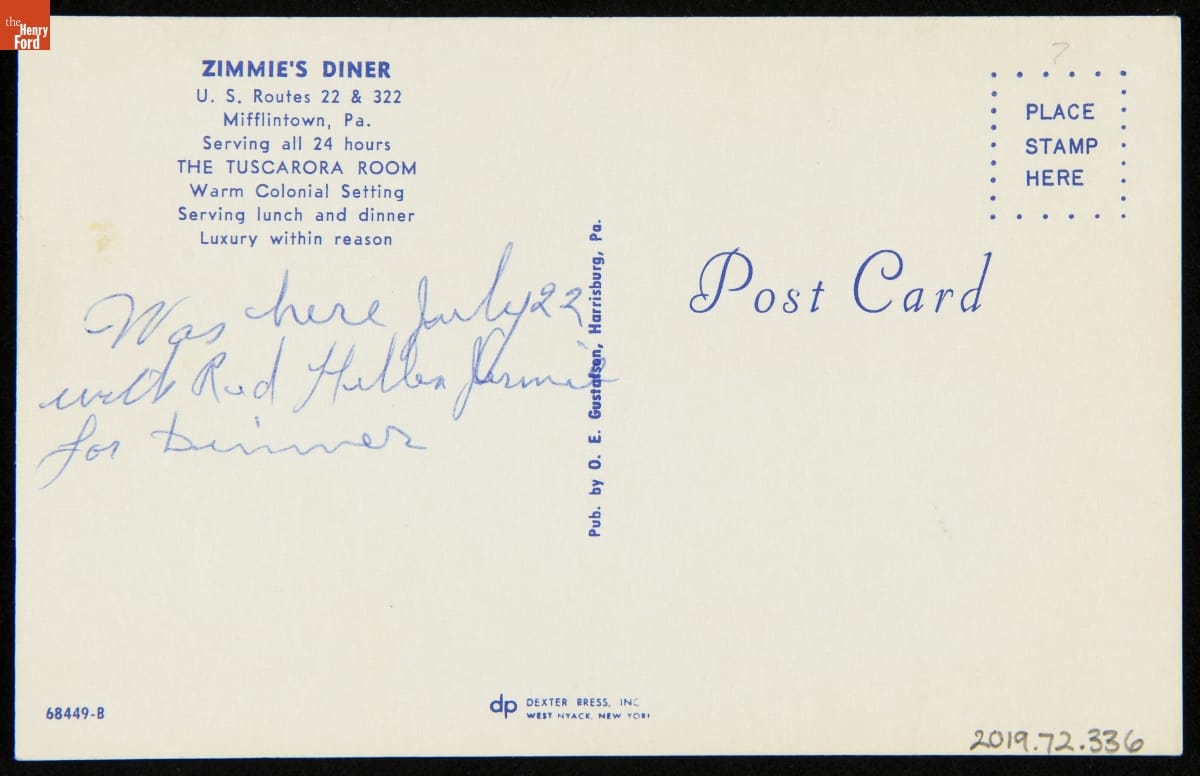 the
Henry
Ford
ZIMMIE'S DINER
U. S. Routes 22 & 322
Mifflintown, Pa.
Serving all 24 hours
THE TUSCARORA ROOM
Warm Colonial Setting
Serving lunch and dinner
Luxury within reason
Was here July 22
with Red Hellen
for Dinner
Pub. by O. E. Gustafson, Harrisburg, Pa.
?
PLACE
STAMP
HERE
Post Card
68449-B
dp DEXTER PRESS, INC
WEST NYACK, NEW YORK
2019.72.336